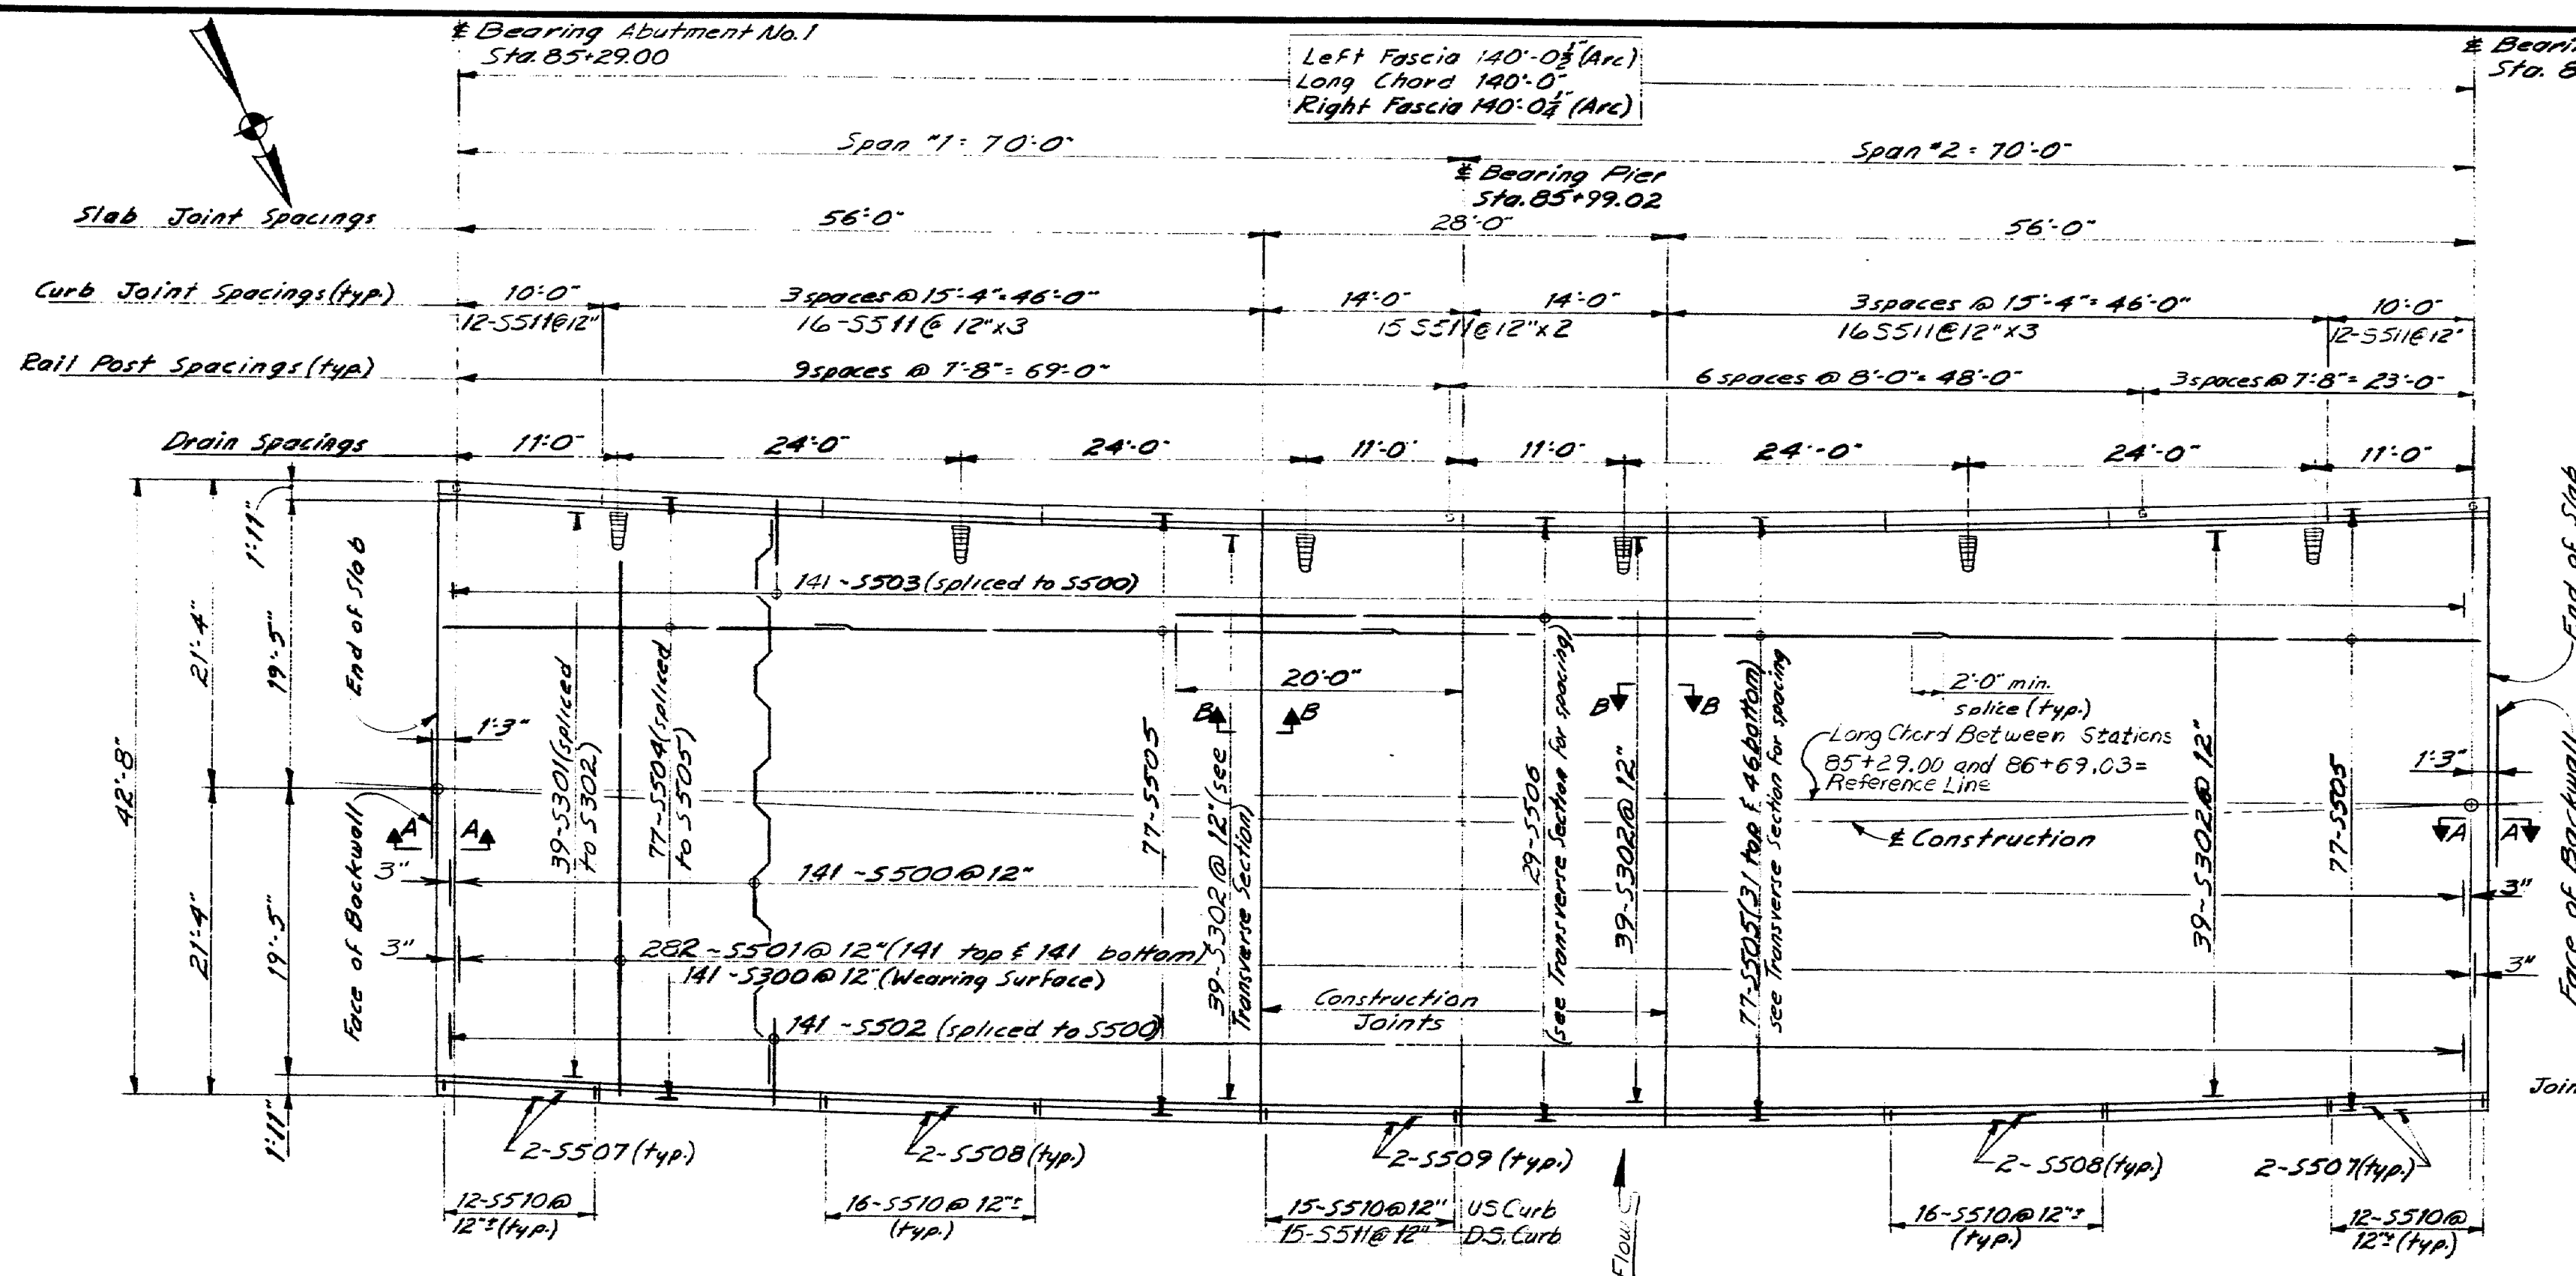 ℄ Bearing Abutment No.1
Sta. 85+29.00
Left Fascia 140'-0½" (Arc)
Long Chord 140'-0"
Right Fascia 140'-0¼" (Arc)
℄ Bearin
Sta. 8
Span #1 = 70'-0"
Span #2 = 70'-0"
℄ Bearing Pier
Sta. 85+99.02
Slab Joint Spacings
56'-0"
28'-0"
56'-0"
Curb Joint Spacings (typ.)
10'-0"
3 spaces @ 15'-4" = 46'-0"
14'-0"
14'-0"
3 spaces @ 15'-4" = 46'-0"
10'-0"
12-S511@12"
16-S511@ 12"x3
15 S511@12"x2
16 S511@12"x3
12-S511@12"
Rail Post Spacings (typ.)
9 spaces @ 7'-8" = 69'-0"
6 spaces @ 8'-0" = 48'-0"
3 spaces @ 7'-8" = 23'-0"
Drain Spacings
11'-0"
24'-0"
24'-0"
11'-0"
11'-0"
24'-0"
24'-0"
11'-0"
1'-11"
21'-4"
19'-5"
42'-8"
21'-4"
19'-5"
1'-11"
End of Slab
Face of Backwall
1'-3"
3"
3"
A
A
39-S301 (spliced
to S302)
77-S504 (spliced
to S505)
141-S503 (spliced to S500)
141-S500@12"
282-S501@12" (141 top & 141 bottom)
141-S300@12" (Wearing Surface)
141-S502 (spliced to S500)
77-S505
39-S302@12" (see
Transverse Section)
20'-0"
B
B
29-S506
(see Transverse Section for spacing)
B
B
39-S302@12"
77-S505 (31 top & 46 bottom)
see Transverse Section for spacing
2'-0" min.
splice (typ.)
Long Chord Between Stations
85+29.00 and 86+69.03=
Reference Line
℄ Construction
Construction
Joints
39-S302@12"
77-S505
1'-3"
A
A
3"
3"
End of Slab
Face of Backwall
Join
2-S507 (typ.)
2-S508 (typ.)
2-S509 (typ.)
2-S508 (typ.)
2-S507 (typ.)
12-S510@
12"± (typ.)
16-S510@12"±
(typ.)
15-S510@12" US Curb
15-S511@12" D.S. Curb
Flow
16-S510@12"±
(typ.)
12-S510@
12"± (typ.)